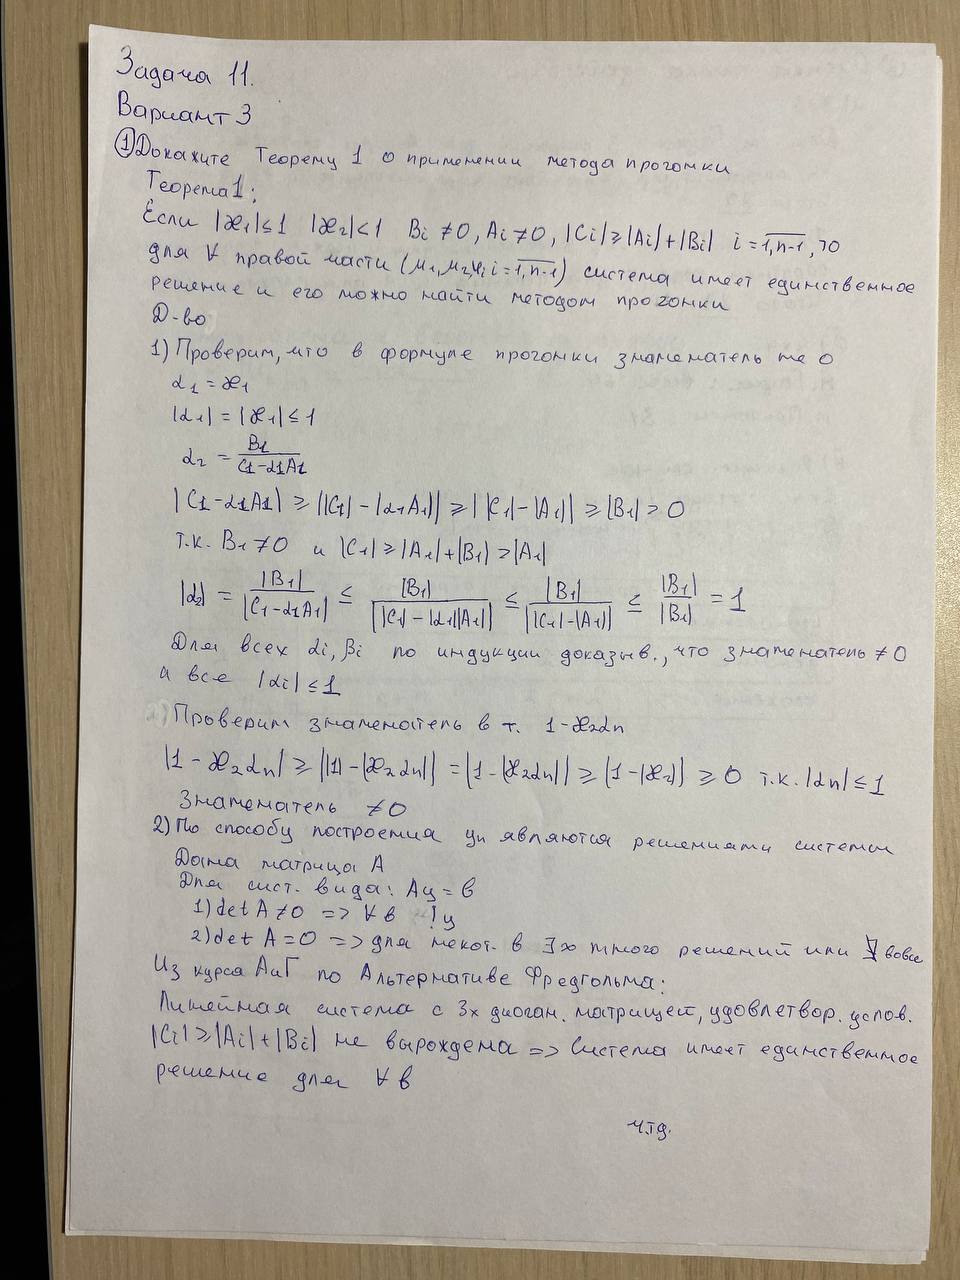 Задача 11.
Вариант 3
① Докажите Теорему 1 о применении метода прогонки
Теорема 1:
Если |æ₁|≤1 |æ₂|<1 Bi ≠0, Ai ≠0, |Ci|≥|Ai|+|Bi| i = 1,n-1, то
для ∀ правой части (μ₁, μ₂ φi i = 1,n-1) система имеет единственное
решение и его можно найти методом прогонки
Д-во
1) Проверим, что в формуле прогонки знаменатель не 0
α₁ = æ₁
|α₁| = |æ₁| ≤ 1
α₂ = B₁/(C₁-α₁A₁)
|C₁-α₁A₁| ≥ ||C₁|-|α₁A₁|| ≥ ||C₁|-|A₁|| ≥ |B₁| > 0
т.к. B₁ ≠0 и |C₁| ≥ |A₁|+|B₁| > |A₁|
|α₂| = |B₁|/|C₁-α₁A₁| ≤ |B₁|/||C₁|-|α₁||A₁|| ≤ |B₁|/||C₁|-|A₁|| ≤ |B₁|/|B₁| = 1
Для всех αi, βi по индукции доказыв., что знаменатель ≠ 0
а все |αi| ≤ 1
Проверим знаменатель в т. 1-æ₂αn
|1-æ₂αn| ≥ ||1|-|æ₂αn|| = |1-|æ₂αn|| ≥ |1-|æ₂|| ≥ 0 т.к. |αn| ≤ 1
Знаменатель ≠0
2) По способу построения yn являются решениями системы
Дана матрица A
Для сист. вида: Ay = b
1) det A ≠ 0 => ∀ b ! y
2) det A = 0 => для некот. b ∃ много решений или ∄ вовсе
Из курса АиГ по Альтернативе Фредгольма:
Линейная система с 3х диаган. матрицей, удовлетвор. услов.
|Ci| ≥ |Ai|+|Bi| не вырождена => Система имеет единственное
решение для ∀ b
ч.тд.